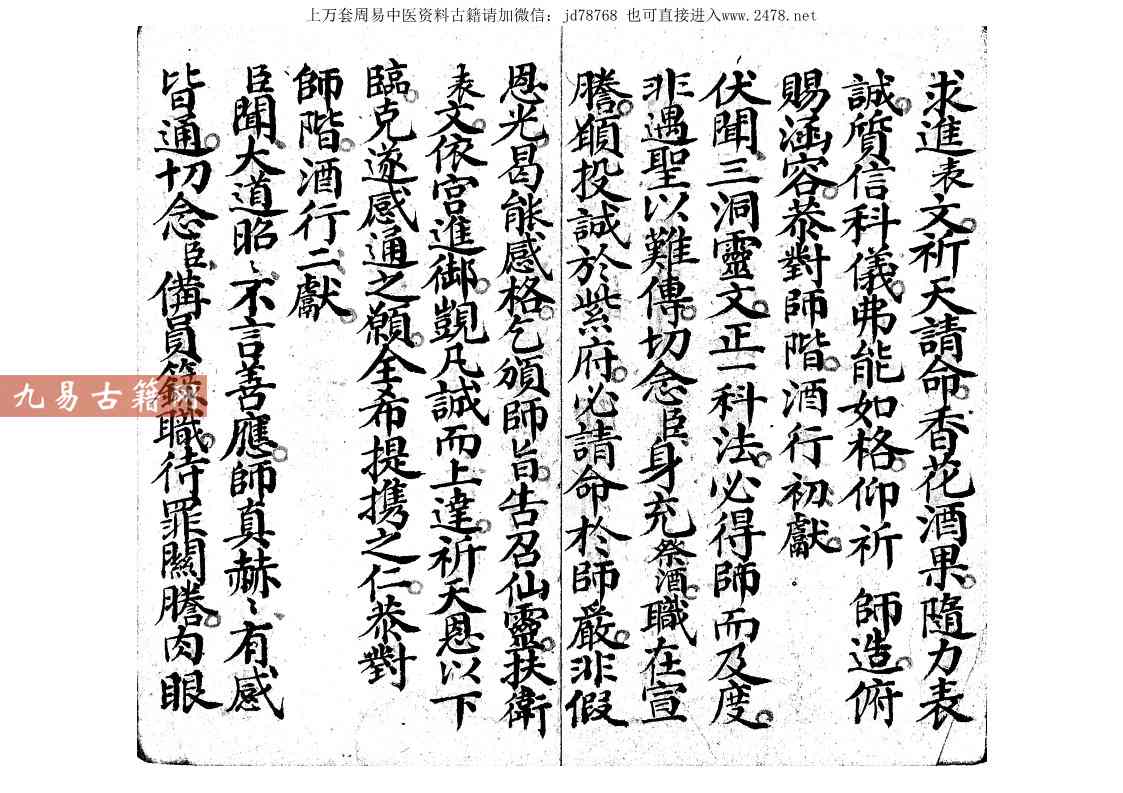 上万套周易中医资料古籍请加微信：jd78768 也可直接进入www.2478.net
求進表文祈天請命香花酒果隨力表
誠質信科儀弗能如格仰祈 師造俯
賜涵容恭對師階酒行初獻
伏聞三洞靈文正一科法必得師而及度
非遇聖以難傳切念臣身充祭酒職在宣
謄顓投誠於紫府必請命於師嚴非假
恩光曷能感格乞頒師旨告召仙靈扶衛
表文依宮進御覬凡誠而上達祈天恩以下
臨克遂感通之願全希提携之仁恭對
師階酒行二獻
臣聞大道昭〻不言善應師真赫〻有感
皆通切念臣備員籙職待罪關謄肉眼
九易古籍网